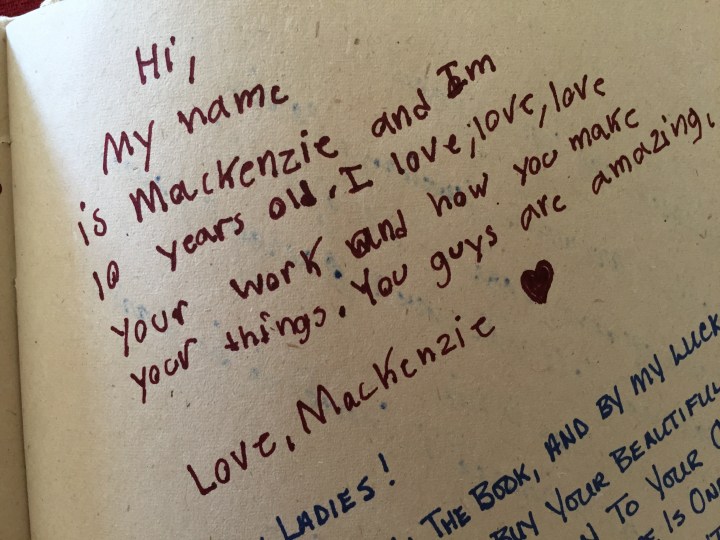 Hi,
My name
is Mackenzie and Im
10 years old. I love, love, love
your work and how you make
your things. You guys are amazing.
Love, Mackenzie ♥
LADIES!
THE BOOK, AND BY MY LUCK
BUY YOUR BEAUTIFUL
TO YOUR
IS ONE